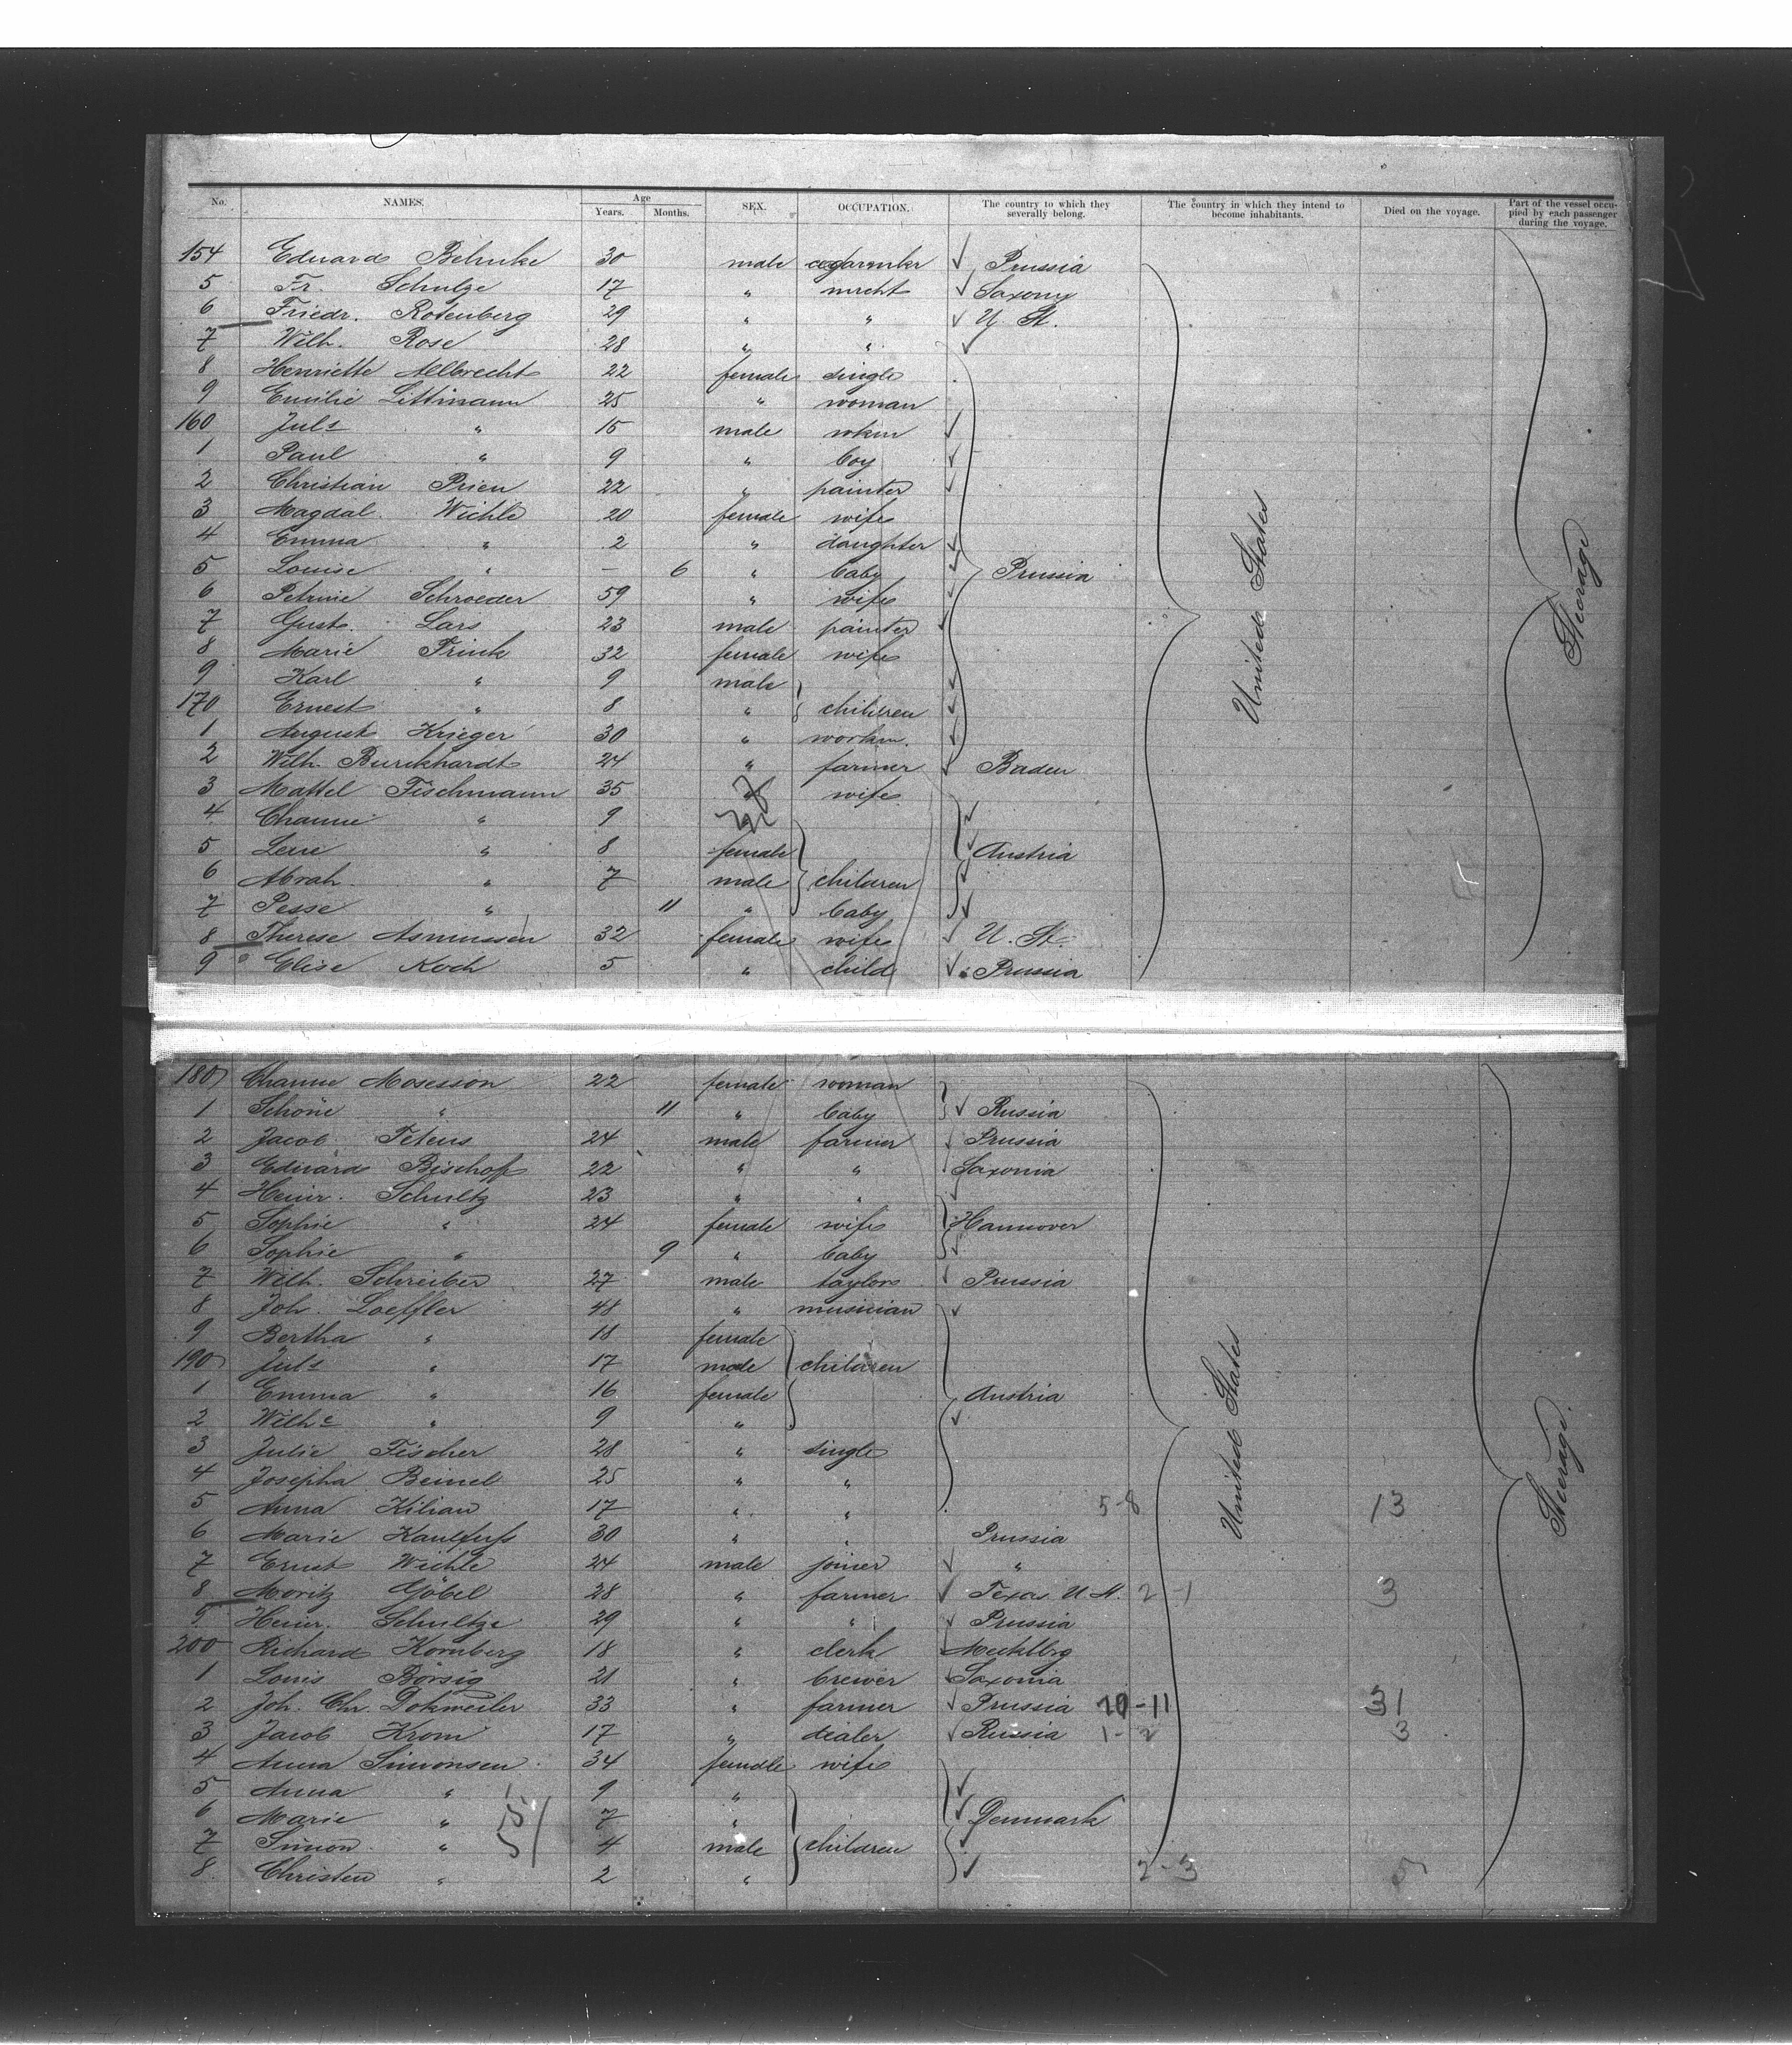 No. NAMES. Age Years. Months. SEX. OCCUPATION. The country to which they severally belong. The country in which they intend to become inhabitants. Died on the voyage. Part of the vessel occupied by each passenger during the voyage.
154 Eduard Behnke 30 male Prussia
5 Fr. Schulze 17 " mrcht Saxony
6 Friedr. Rotenberg 29 " " U. St.
7 Wilh. Rose 28 " "
8 Henriette Albrecht 22 female single
9 Emilie Littmann 25 " woman
160 Juls " 15 male wkm
1 Paul " 9 " boy
2 Christian Prien 22 " painter
3 Magdal. Wichle 20 female wife
4 Emma " 2 " daughter
5 Louise " — 6 " baby Prussia
6 Petrine Schroeder 59 " wife
7 Gust. Lars 23 male painter
8 Marie Frink 32 female wife
9 Karl " 9 male
170 Ernest " 8 " children
1 August Krieger 30 " workm.
2 Wilh. Burckhardt 24 " farmer Baden
3 Mattel Fischmann 35 " wife
4 Channe " 9
5 Leie " 8 female Austria
6 Abrah. " 7 male children
7 Pesse " 11 " baby
8 Therese Asmussen 32 female wife U. St.
9 Elise Koch 5 " child Prussia
United States
Steerage
180 Channe Mosesson 22 female woman
1 Schöne " 11 " baby Russia
2 Jacob Petens 24 male farmer Prussia
3 Eduard Bischof 22 " " Saxonia
4 Heinr. Schultz 23 " "
5 Sophie " 24 female wife Hannover
6 Sophie " 9 " baby
7 Wilh. Schreiber 27 male taylor Prussia
8 Joh. Loeffler 48 " musician
9 Bertha " 18 female
190 Juls " 17 male children
1 Emma " 16 female Austria
2 Wilhe " 9 "
3 Julie Fischer 28 " single
4 Josepha Beinel 25 " "
5 Anna Kilian 17 " " 5-8 13
6 Marie Kaulfufs 30 " " Prussia
7 Ernst Wichle 24 male joiner "
8 Moritz Göbel 28 " farmer Texas U St. 2-1 3
9 Heinr. Schultze 29 " " Prussia
200 Richard Kornberg 18 " clerk Mecklbrg
1 Louis Börsig 21 " brewer Saxonia
2 Joh. Chr. Dokweiler 33 " farmer Prussia 10-11 31
3 Jacob Krom 17 " dealer Russia 1-2 3
4 Anna Simonsen 34 female wife
5 Anna " 9 "
6 Marie " 7 " Denmark
7 Simon " 4 male children
8 Christen " 2 " 2-3 5
United States
Steerage.